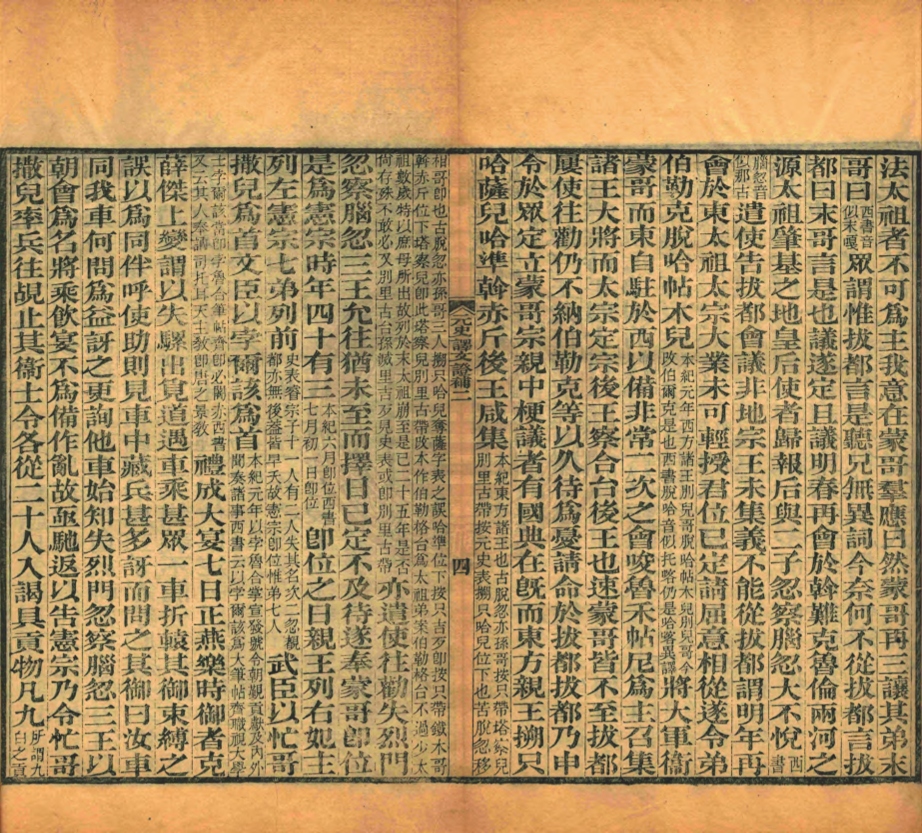 法太祖者不可為主我意在蒙哥羣應曰然蒙哥再三讓其弟末
哥曰西書音似末嘎眾謂惟拔都言是聽兄無異詞今奈何不從拔都言拔
都曰末哥言是也議遂定且議明春再會於斡難克魯倫兩河之
源太祖肇基之地皇后使者歸報后與二子忽察腦忽大不悅西書
腦忽音似那古遣使告拔都會議非地宗王未集義不能從拔都謂明年再
會於東太祖太宗大業未可輕授君位已定請屈意相從遂令弟
伯勒克脫哈帖木兒本紀元年西方諸王別兒哥脫哈帖木兒別兒哥今改伯勒克是也西書脫哈音似托喀仍是哈將異譯將大軍衞
蒙哥而東自駐於西以備非常二次之會唆魯禾帖尼為主召集
諸王大將而太宗定宗後王察合台後王也速蒙哥皆不至拔都
屢使往勸仍不納伯勒克等以久待為憂請命於拔都拔都乃申
令於眾定立蒙哥宗親中梗議者有國典在旣而東方親王搠只
哈薩兒哈準斡赤斤後王咸集本紀東方諸王也古脫忽亦孫哥按只帶塔察兒別里古帶按元史表搠只哈兒位下也苦脫忽移
元史譯文證補二 四
相哥卽也古脫忽亦孫哥三人搠只哈兒奪薩字表之誤哈準位下按只吉歹卽按只帶鐵木哥斡赤斤位下塔察兒卽此塔察兒別里古帶改本作伯勒格台為太祖弟米伯勒格台不過少太
祖數歲特以庶母所出故列於末太祖崩至是已二十五年是否尚存殊不敢必又別里古台孫滅里吉歹見史表或卽別里古帶亦遣使往勸失烈門
忽察腦忽三王允往猶未至而擇日已定不及待遂奉蒙哥卽位
是為憲宗時年四十有三本紀六月卽位西書七月初一日卽位卽位之日親王列右妃主
列左憲宗七弟列前史表睿宗子十一人有二人失其名次二忽覩都亦無後蓋皆早夭故憲宗卽位惟弟七人武臣以忙哥
撒兒為首文臣以孛爾該為首本紀元年以孛魯合掌宣發號令朝覲貢獻及內外聞奏諸事西書云以孛爾該為大筆帖齊職視大學
士孛爾該當卽孛魯合筆帖齊卽必闍亦西書又云其人奉諸司托耳天主教卽唐之景教禮成大宴七日正燕樂時御者克
薛傑上變謂以失騾出覓道遇車乘甚眾一車折轅其御束縛之
誤以為同伴呼使助則見車中藏兵甚多訝而問之其御曰汝車
同我車何問為益訝之更詢他車始知失烈門忽察腦忽三王以
朝會為名將乘飲宴不為備作亂故亟馳返以告憲宗乃令忙哥
撒兒率兵往覘止其衞士令各從二十人入謁具貢物凡九所謂九白之貢